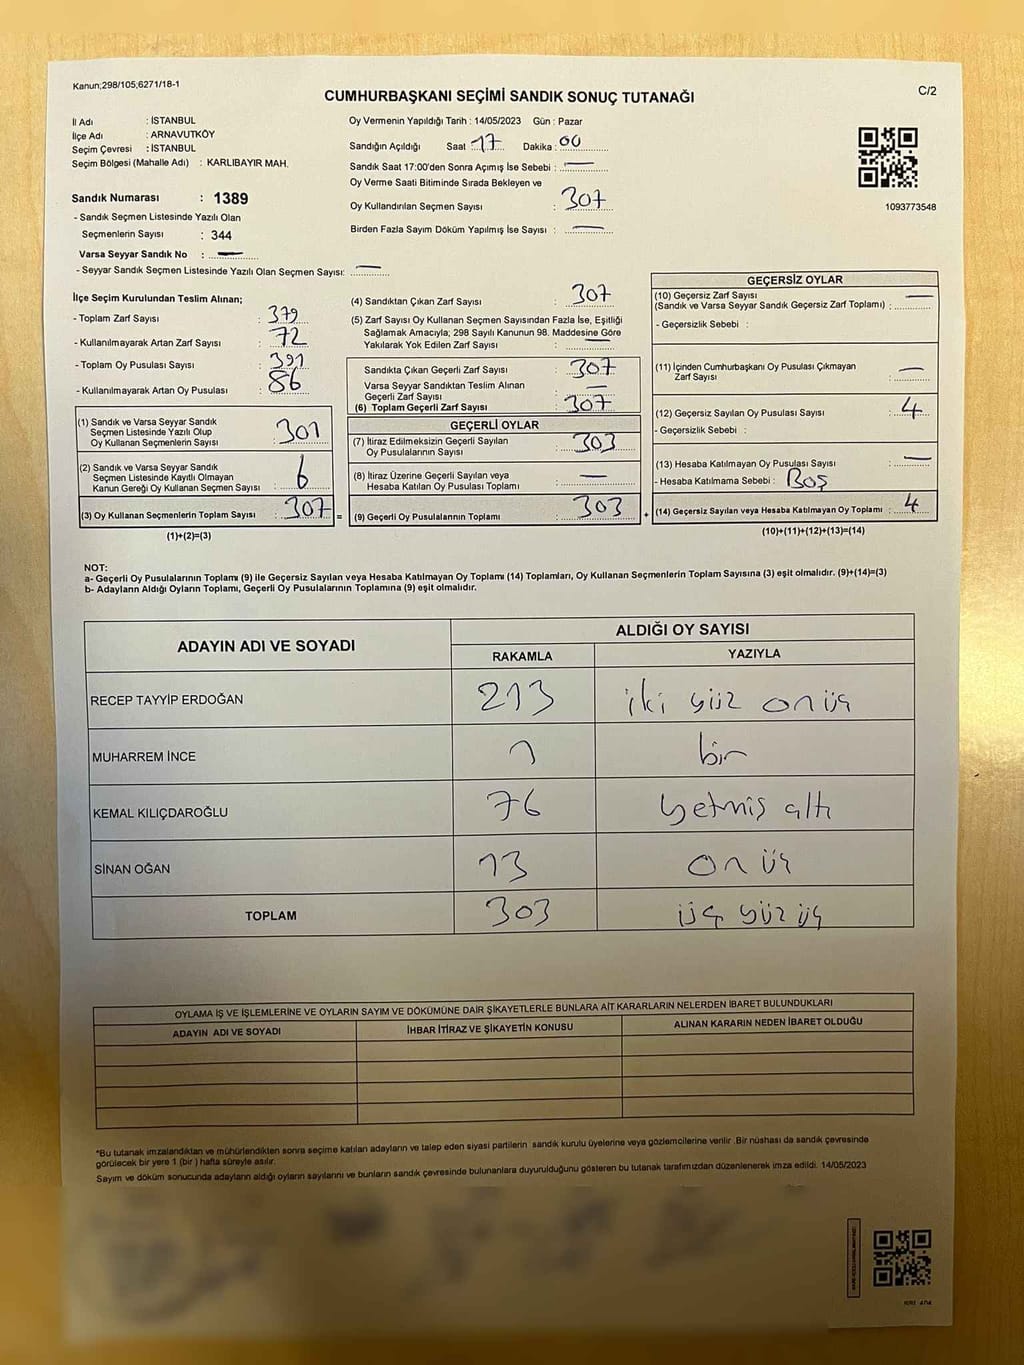 Kanun;298/105;6271/18-1
C/2
CUMHURBAŞKANI SEÇİMİ SANDIK SONUÇ TUTANAĞI
İl Adı : İSTANBUL
İlçe Adı : ARNAVUTKÖY
Seçim Çevresi : İSTANBUL
Seçim Bölgesi (Mahalle Adı) : KARLIBAYIR MAH.
Sandık Numarası : 1389
- Sandık Seçmen Listesinde Yazılı Olan
Seçmenlerin Sayısı : 344
Varsa Seyyar Sandık No : —
- Seyyar Sandık Seçmen Listesinde Yazılı Olan Seçmen Sayısı: —
Oy Vermenin Yapıldığı Tarih : 14/05/2023 Gün : Pazar
Sandığın Açıldığı Saat : 17 Dakika : 00
Sandık Saat 17:00'den Sonra Açımış İse Sebebi : —
Oy Verme Saati Bitiminde Sırada Bekleyen ve
Oy Kullandırılan Seçmen Sayısı : 307
Birden Fazla Sayım Döküm Yapılmış İse Sayısı : —
1093773548
İlçe Seçim Kurulundan Teslim Alınan;
- Toplam Zarf Sayısı : 379
- Kullanılmayarak Artan Zarf Sayısı : 72
- Toplam Oy Pusulası Sayısı : 391
- Kullanılmayarak Artan Oy Pusulası : 86
(1) Sandık ve Varsa Seyyar Sandık
Seçmen Listesinde Yazılı Olup
Oy Kullanan Seçmenlerin Sayısı : 301
(2) Sandık ve Varsa Seyyar Sandık
Seçmen Listesinde Kayıtlı Olmayan
Kanun Gereği Oy Kullanan Seçmen Sayısı : 6
(3) Oy Kullanan Seçmenlerin Toplam Sayısı : 307 =
(1)+(2)=(3)
(4) Sandıktan Çıkan Zarf Sayısı : 307
(5) Zarf Sayısı Oy Kullanan Seçmen Sayısından Fazla İse, Eşitliği
Sağlamak Amacıyla; 298 Sayılı Kanunun 98. Maddesine Göre
Yakılarak Yok Edilen Zarf Sayısı : —
Sandıkta Çıkan Geçerli Zarf Sayısı : 307
Varsa Seyyar Sandıktan Teslim Alınan
Geçerli Zarf Sayısı : —
(6) Toplam Geçerli Zarf Sayısı : 307
GEÇERLİ OYLAR
(7) İtiraz Edilmeksizin Geçerli Sayılan
Oy Pusulalarının Sayısı : 303
(8) İtiraz Üzerine Geçerli Sayılan veya
Hesaba Katılan Oy Pusulası Toplamı : —
(9) Geçerli Oy Pusulalarının Toplamı : 303 +
GEÇERSİZ OYLAR
(10) Geçersiz Zarf Sayısı
(Sandık ve Varsa Seyyar Sandık Geçersiz Zarf Toplamı) : —
- Geçersizlik Sebebi :
(11) İçinden Cumhurbaşkanı Oy Pusulası Çıkmayan
Zarf Sayısı : —
(12) Geçersiz Sayılan Oy Pusulası Sayısı : 4
- Geçersizlik Sebebi :
(13) Hesaba Katılmayan Oy Pusulası Sayısı : —
- Hesaba Katılmama Sebebi : Boş
(14) Geçersiz Sayılan veya Hesaba Katılmayan Oy Toplamı : 4
(10)+(11)+(12)+(13)=(14)
NOT:
a- Geçerli Oy Pusulalarının Toplamı (9) ile Geçersiz Sayılan veya Hesaba Katılmayan Oy Toplamı (14) Toplamları, Oy Kullanan Seçmenlerin Toplam Sayısına (3) eşit olmalıdır. (9)+(14)=(3)
b- Adayların Aldığı Oyların Toplamı, Geçerli Oy Pusulalarının Toplamına (9) eşit olmalıdır.
ADAYIN ADI VE SOYADI ALDIĞI OY SAYISI
RAKAMLA YAZIYLA
RECEP TAYYİP ERDOĞAN 213 iki yüz onüç
MUHARREM İNCE 1 bir
KEMAL KILIÇDAROĞLU 76 yetmiş altı
SİNAN OĞAN 13 on üç
TOPLAM 303 üç yüz üç
OYLAMA İŞ VE İŞLEMLERİNE VE OYLARIN SAYIM VE DÖKÜMÜNE DAİR ŞİKAYETLERLE BUNLARA AİT KARARLARIN NELERDEN İBARET BULUNDUKLARI
ADAYIN ADI VE SOYADI İHBAR İTİRAZ VE ŞİKAYETİN KONUSU ALINAN KARARIN NEDEN İBARET OLDUĞU
*Bu tutanak imzalandıktan ve mühürlendikten sonra seçime katılan adayların ve talep eden siyasi partilerin sandık kurulu üyelerine veya gözlemcilerine verilir .Bir nüshası da sandık çevresinde
görülecek bir yere 1 (bir ) hafta süreyle asılır.
Sayım ve döküm sonucunda adayların aldığı oyların sayılarını ve bunların sandık çevresinde bulunanlara duyurulduğunu gösteren bu tutanak tarafımızdan düzenlenerek imza edildi. 14/05/2023